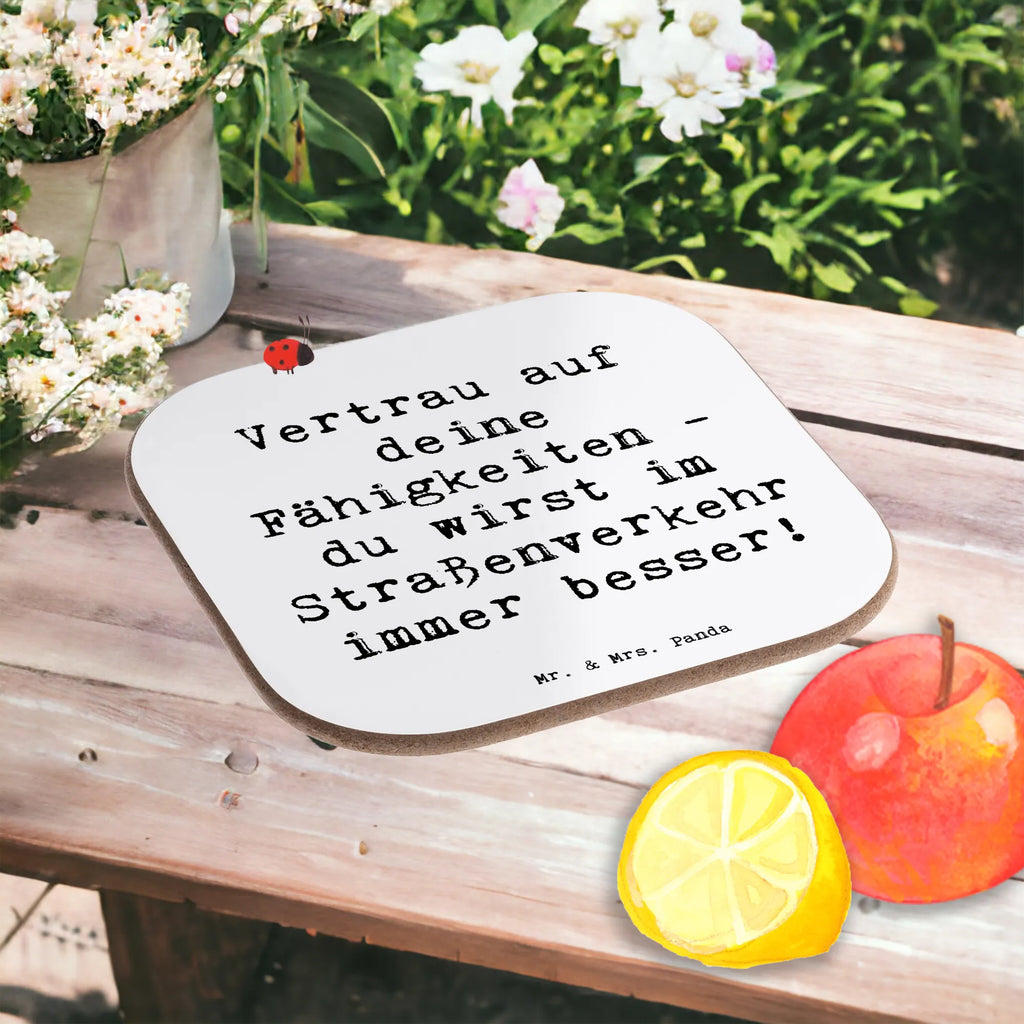 Vertrau auf
deine
Fähigkeiten -
du wirst im
Straßenverkehr
immer besser!
Mr. & Mrs. Panda